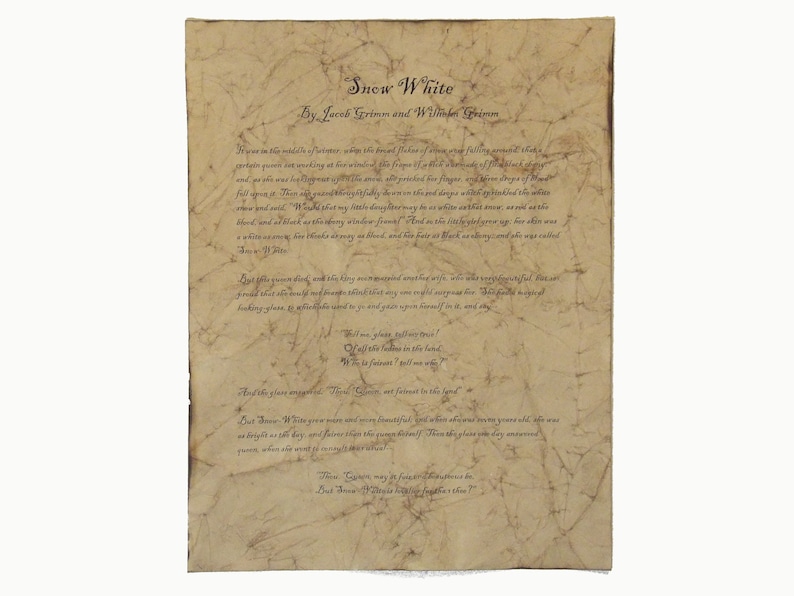 Snow White
By Jacob Grimm and Wilhelm Grimm
It was in the middle of winter, when the broad flakes of snow were falling around, that a
certain queen sat working at her window, the frame of which was made of fine black ebony
and, as she was looking out upon the snow, she pricked her finger, and three drops of blood
fell upon it. Then she gazed thoughtfully down on the red drops which sprinkled the white
snow and said, "Would that my little daughter may be as white as that snow, as red as the
blood, and as black as the ebony window-frame!" And so the little girl grew up; her skin was
a white as snow, her cheeks as rosy as blood, and her hair as black as ebony; and she was called
Snow-White.
But this queen died; and the king soon married another wife, who was very beautiful, but so
proud that she could not bear to think that any one could surpass her. She had a magical
looking-glass, to which she used to go and gaze upon herself in it, and say--
Tell me, glass, tell me true!
Of all the ladies in the land,
Who is fairest? tell me who?"
And the glass answered, "Thou, Queen, art fairest in the land"
But Snow-White grew more and more beautiful; and when she was seven years old, she was
as bright as the day, and fairer than the queen herself. Then the glass one day answered
queen, when she went to consult it as usual--
Thou, Queen, may st fair and beauteous be,
But Snow-White is lovelier far than thee?"